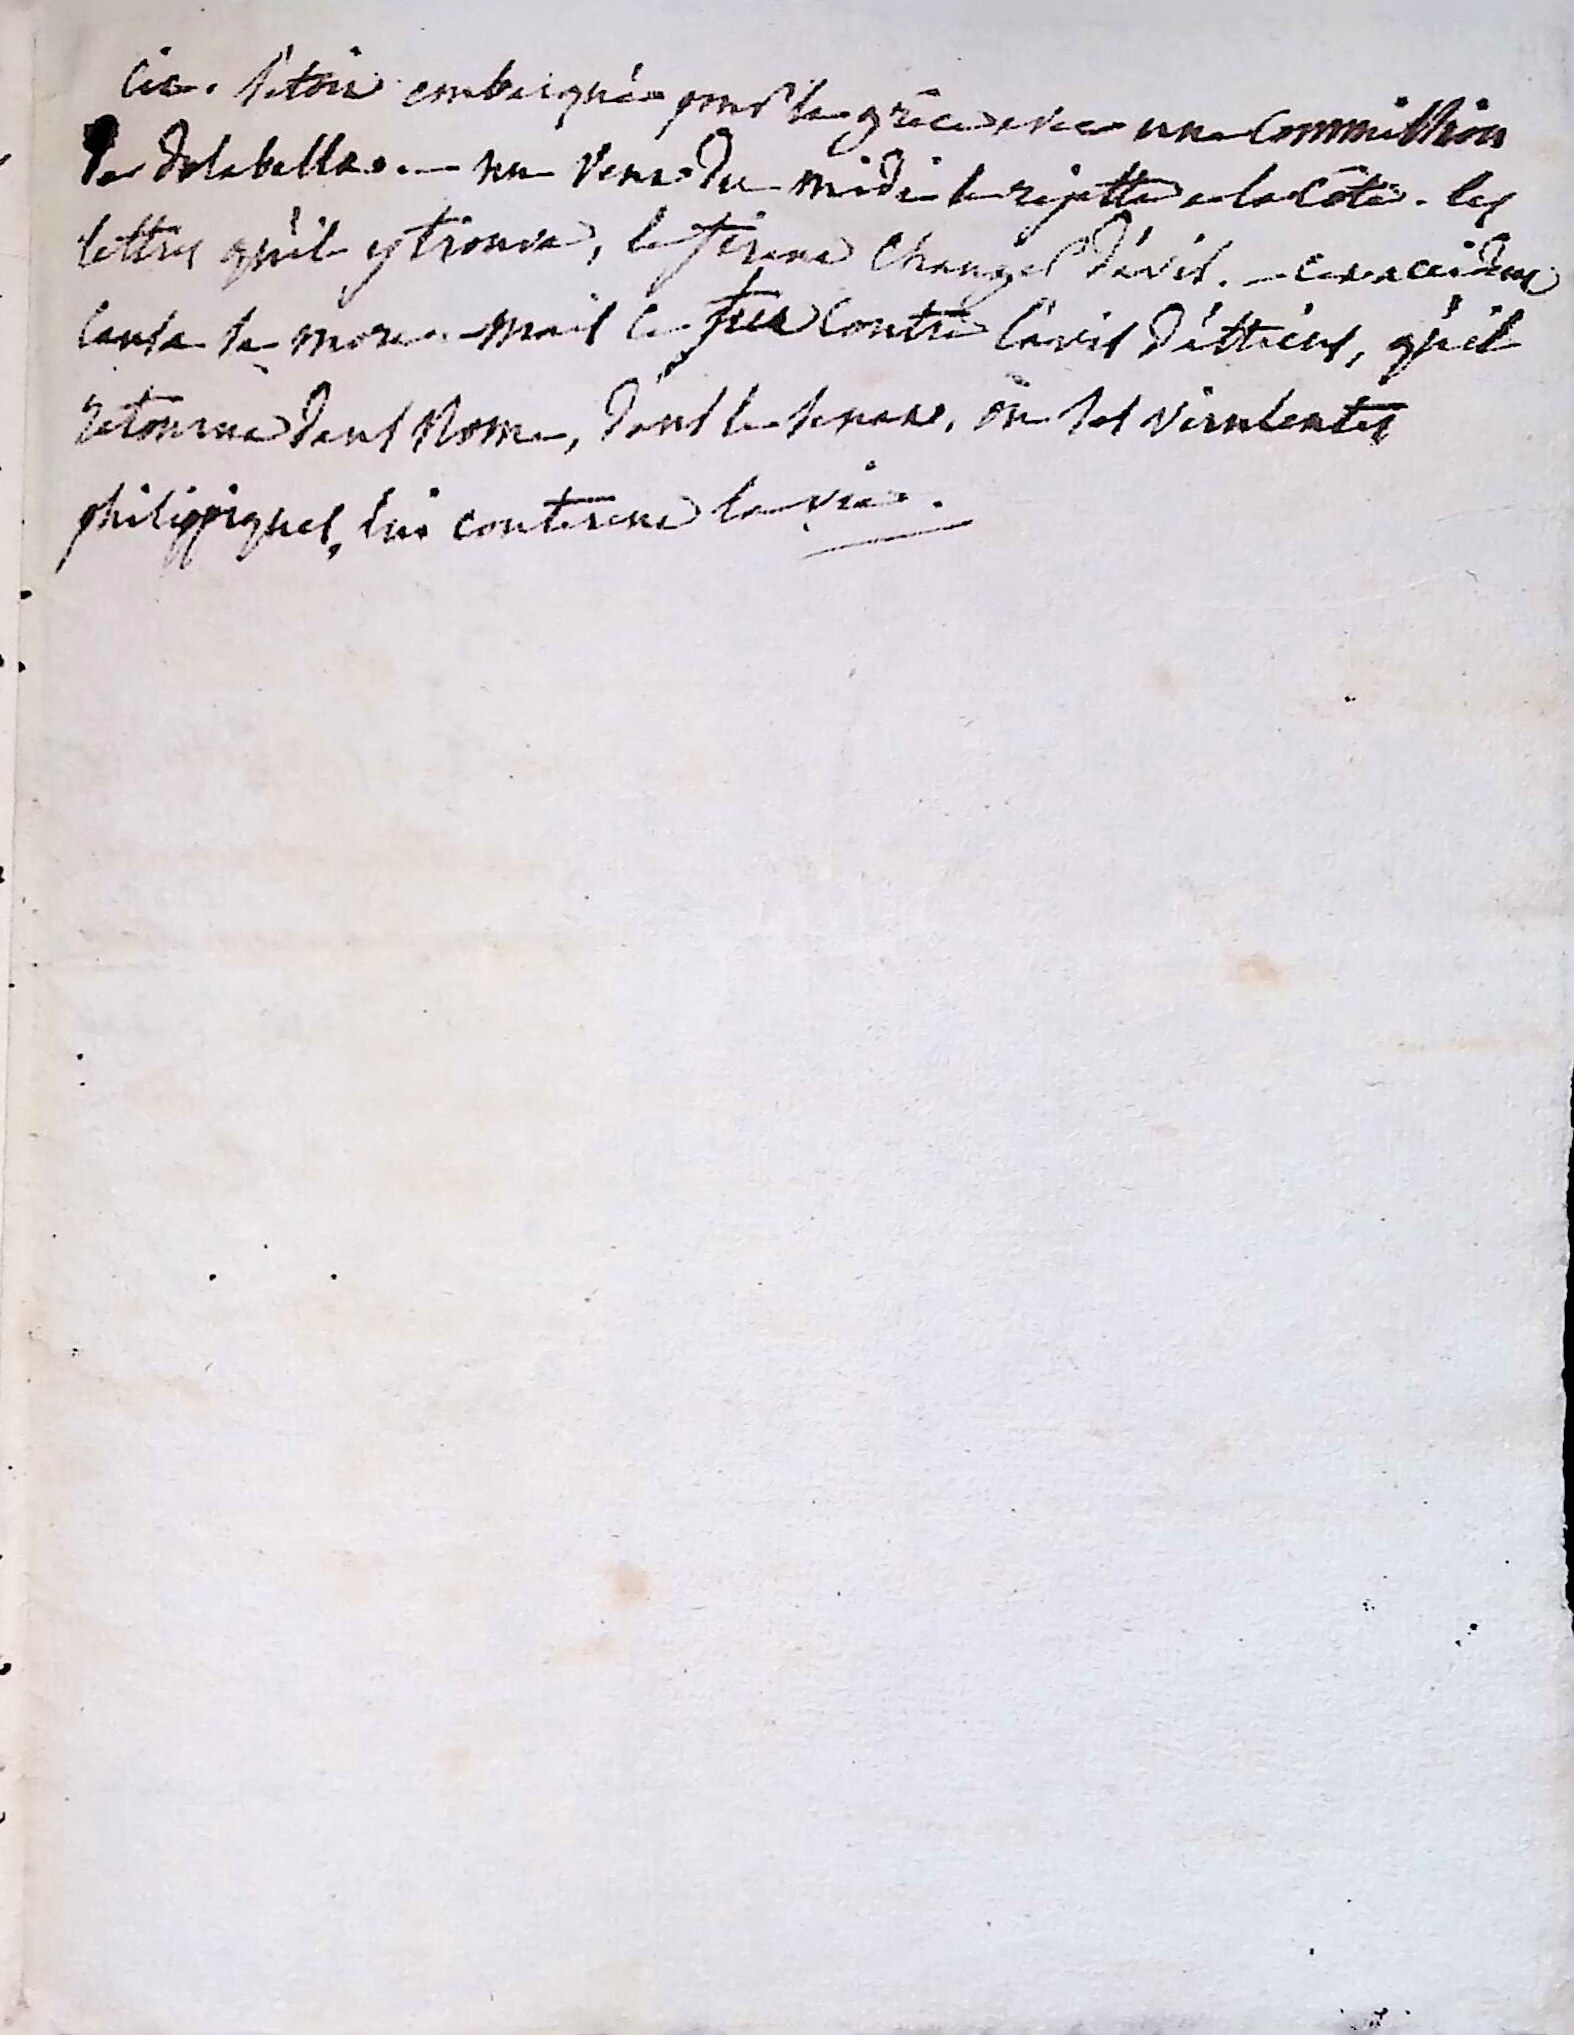 Cic. s'etoit embarqué pour la grèce avec une Commission
De dolabella. — un vent du midi le rejetta a la Côte. les
lettres qu'il y trouva, le firent changer d'avis. — cet accident
causa sa mort. — mais ce fut contre l'avis d'atticus, qu'il
retourna dans Rome, dans le senat, où ses virulentes
philippiques, lui couterent la vie.